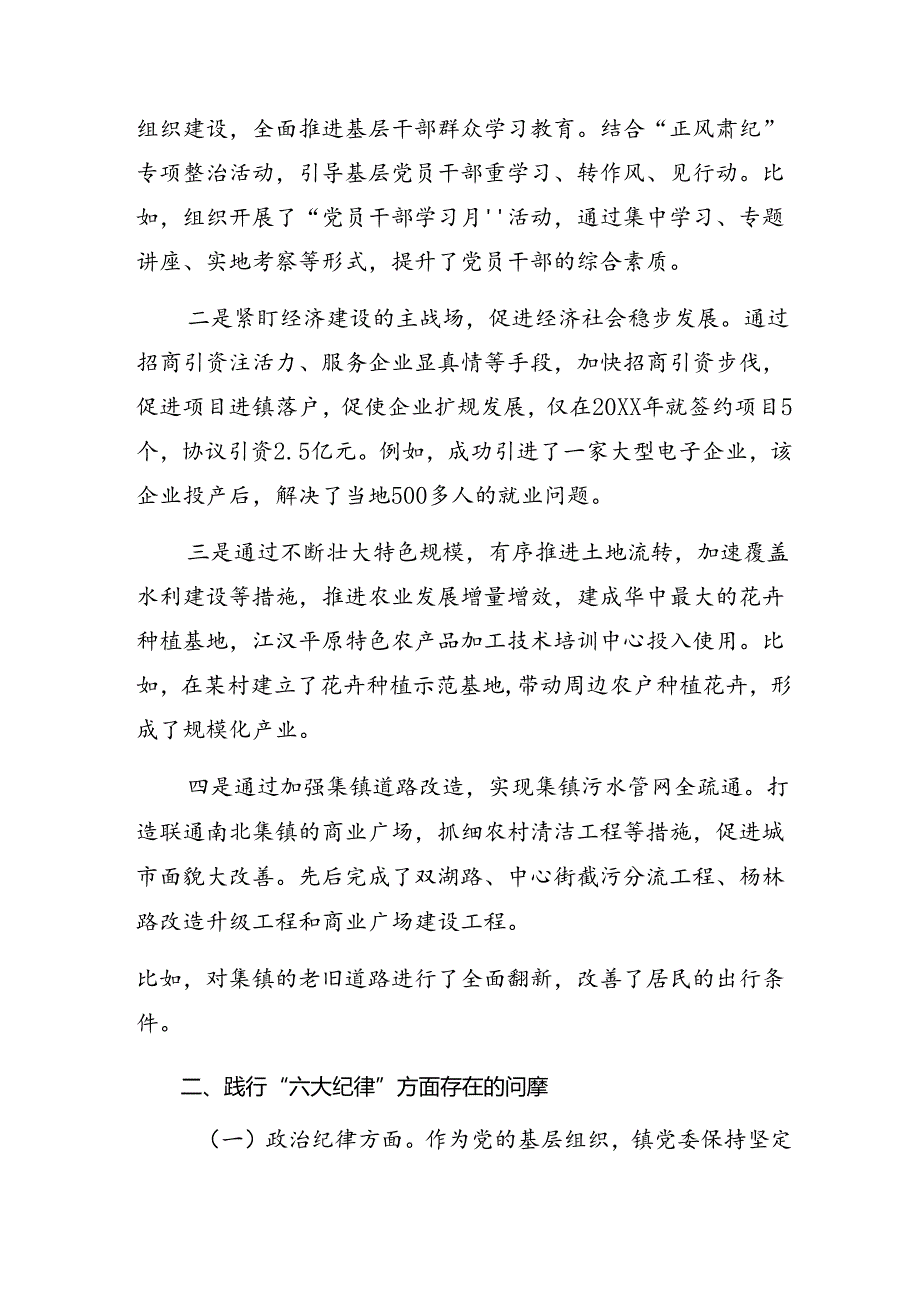 组织建设，全面推进基层干部群众学习教育。结合“正风肃纪”
专项整治活动，引导基层党员干部重学习、转作风、见行动。比
如，组织开展了“党员干部学习月''活动，通过集中学习、专题
讲座、实地考察等形式，提升了党员干部的综合素质。
二是紧盯经济建设的主战场，促进经济社会稳步发展。通过
招商引资注活力、服务企业显真情等手段，加快招商引资步伐，
促进项目进镇落户，促使企业扩规发展，仅在20XX年就签约项目5
个，协议引资2.5亿元。例如，成功引进了一家大型电子企业，该
企业投产后，解决了当地500多人的就业问题。
三是通过不断壮大特色规模，有序推进土地流转，加速覆盖
水利建设等措施，推进农业发展增量增效，建成华中最大的花卉
种植基地，江汉平原特色农产品加工技术培训中心投入使用。比
如，在某村建立了花卉种植示范基地,带动周边农户种植花卉，形
成了规模化产业。
四是通过加强集镇道路改造，实现集镇污水管网全疏通。打
造联通南北集镇的商业广场，抓细农村清洁工程等措施，促进城
市面貌大改善。先后完成了双湖路、中心街截污分流工程、杨林
路改造升级工程和商业广场建设工程。
比如，对集镇的老旧道路进行了全面翻新，改善了居民的出行条
件。
二、践行“六大纪律”方面存在的问摩
（一）政治纪律方面。作为党的基层组织，镇党委保持坚定